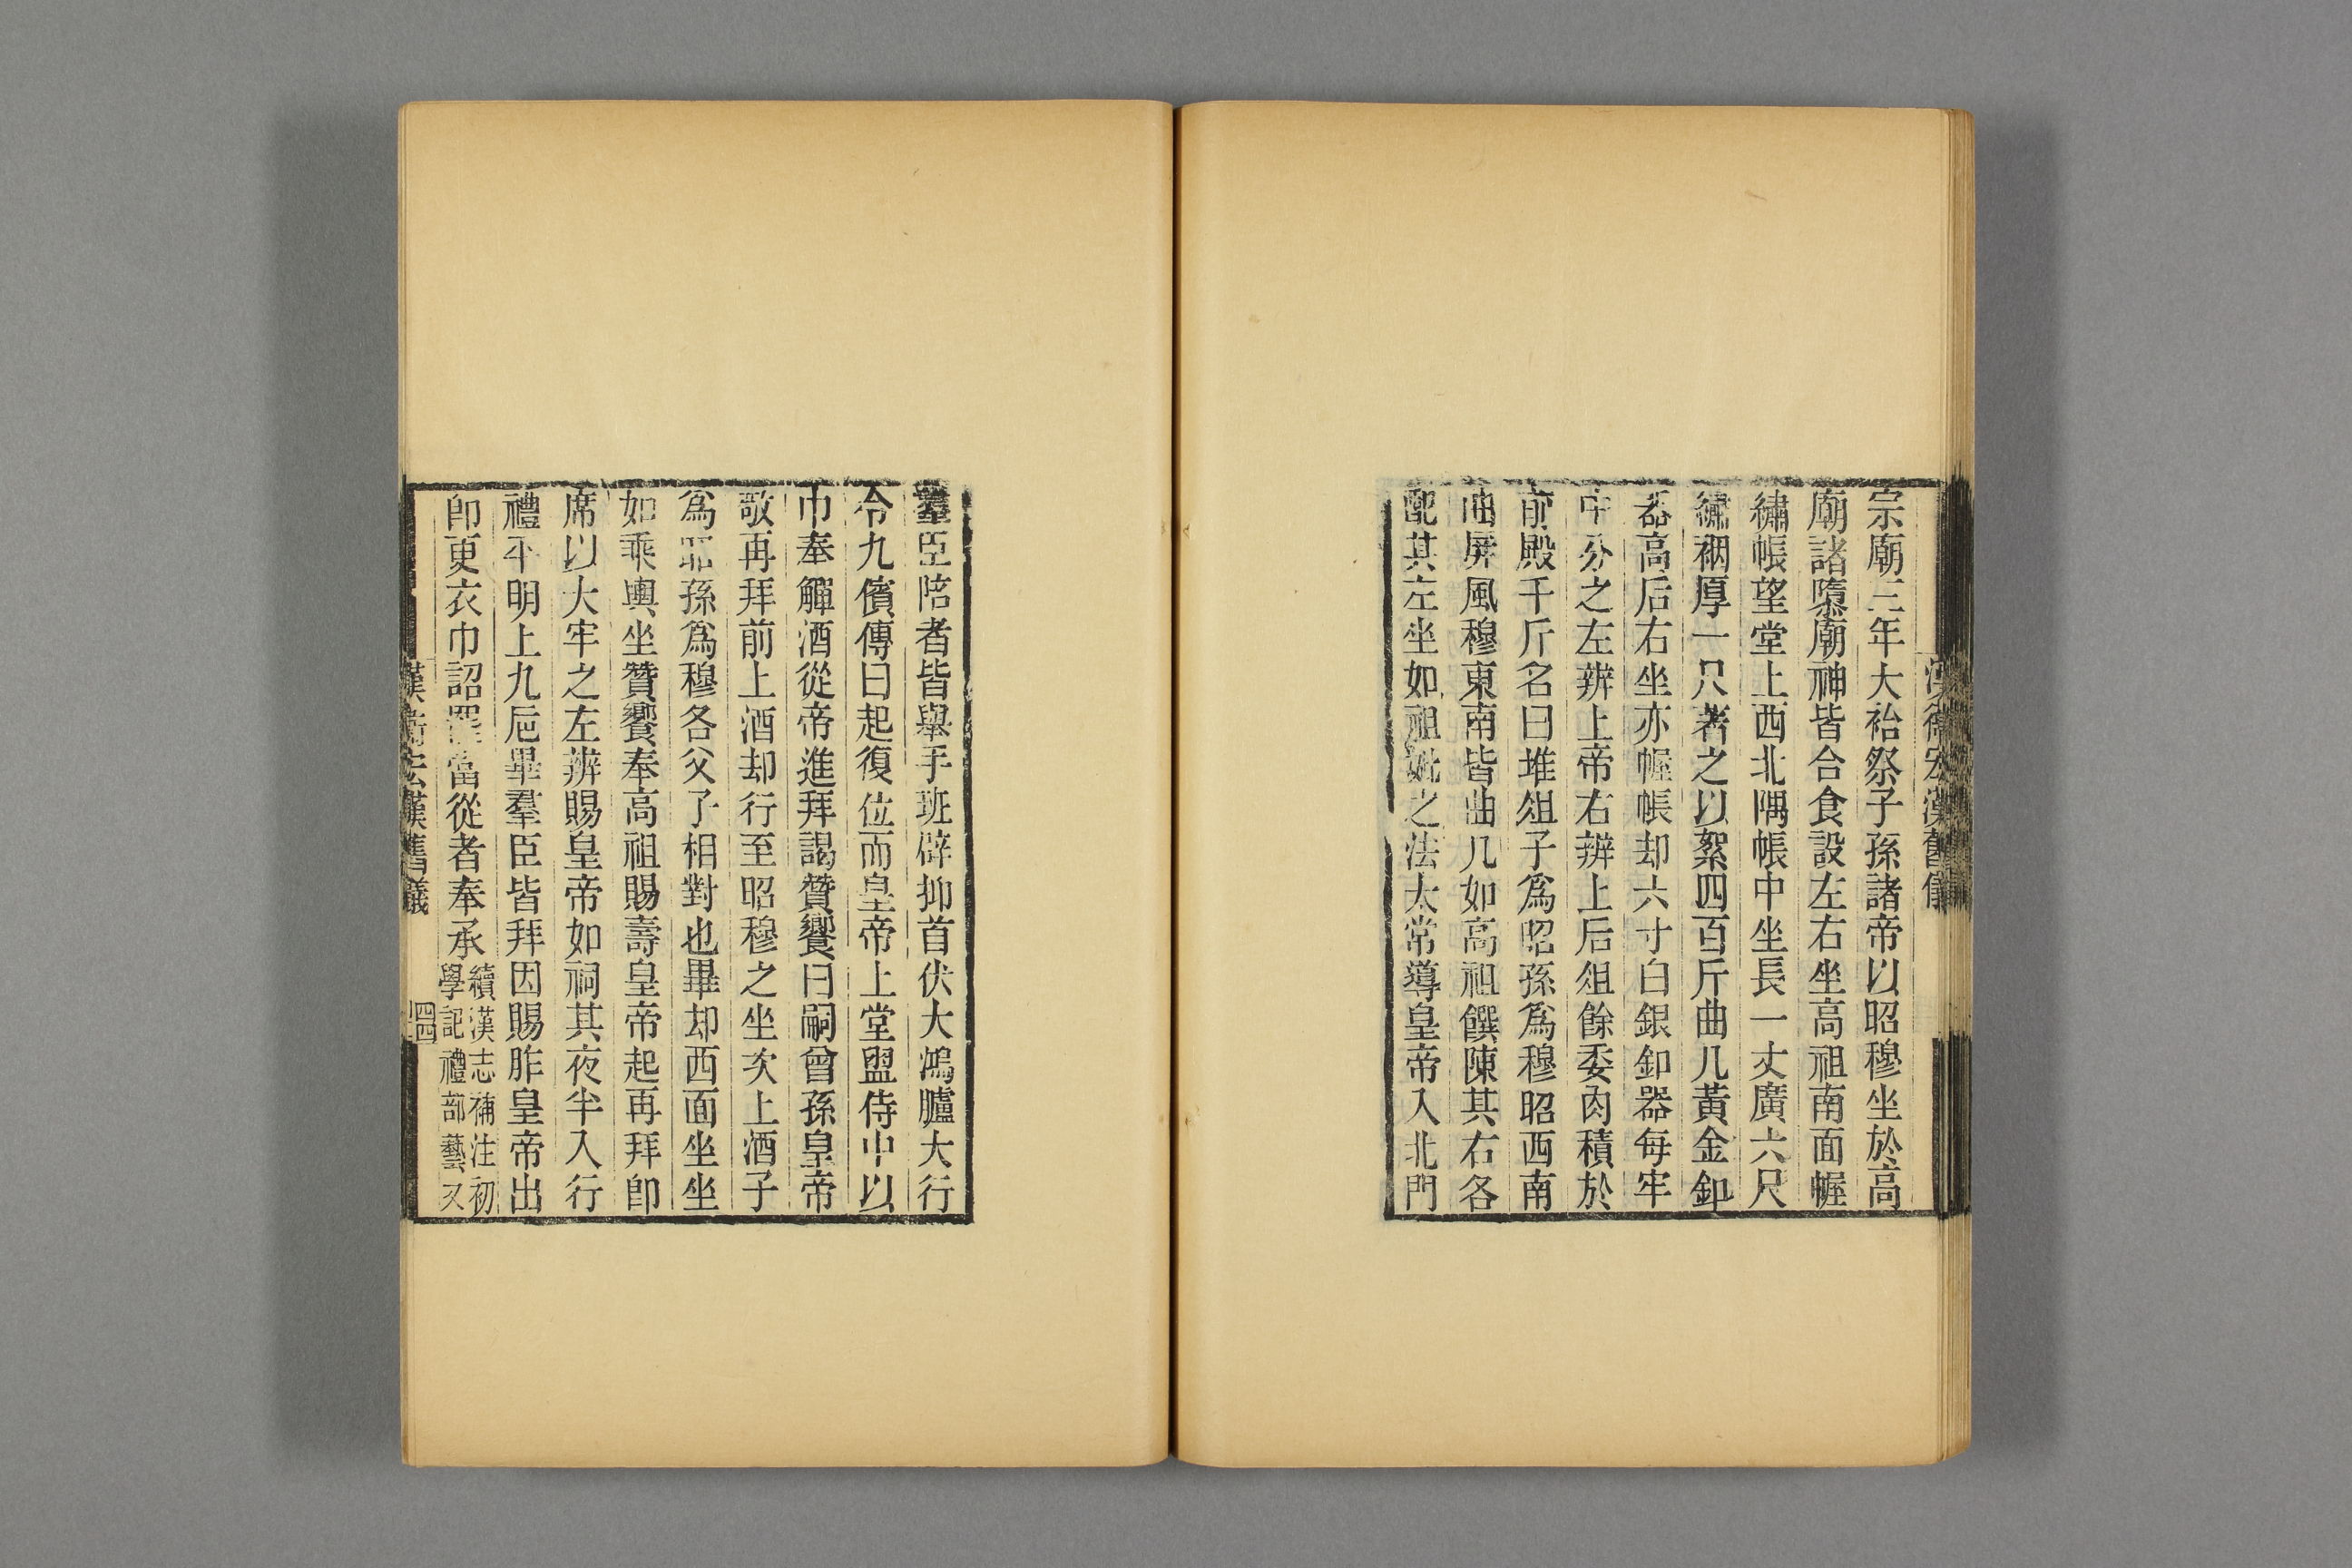 漢衛宏漢舊儀
宗廟三年大祫祭子孫諸帝以昭穆坐於高
廟諸隳廟神皆合食設左右坐高祖南面幄
繡帳望堂上西北隅帳中坐長一丈廣六尺
繡裀厚一尺著之以絮四百斤曲几黃金釦
器高后右坐亦幄帳却六寸白銀釦器每牢
中分之左辨上帝右辨上后俎餘委肉積於
前殿千斤名曰堆俎子爲昭孫爲穆昭西南
曲屏風穆東南皆曲几如高祖饌陳其右各
配其左坐如祖妣之法太常導皇帝入北門
羣臣陪者皆舉手班辟抑首伏大鴻臚大行
令九儐傳曰起復位而皇帝上堂盥侍中以
巾奉觶酒從帝進拜謁贊饗曰嗣曾孫皇帝
敬再拜前上酒却行至昭穆之坐次上酒子
爲昭孫爲穆各父子相對也畢却西面坐坐
如乘輿坐贊饗奉高祖賜壽皇帝起再拜卽
席以大牢之左辨賜皇帝如祠其夜半入行
禮平明上九卮畢羣臣皆拜因賜胙皇帝出
卽更衣巾詔罷當從者奉承續漢志補注初學記禮部藝文
漢衛宏漢舊儀 四四